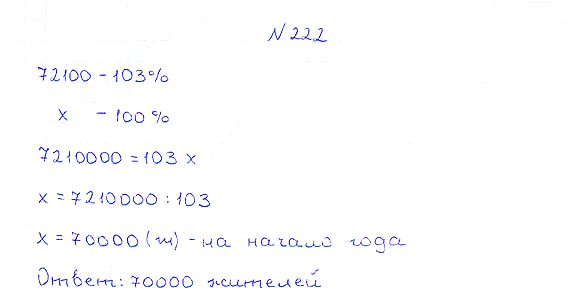 N 222
72100 - 103%
x - 100%
7210000 = 103 x
x = 7210000 : 103
x = 70000 (ж) - на начало года
Ответ: 70000 жителей